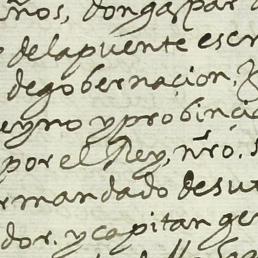 años, don gaspar d
delapuente escri
degobernaçion.
Reyno yprobinçia
por el Rey, nr̃o. s
rmandado desu
dor. ycapitan ge